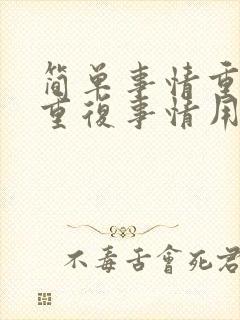 簡单事情重
重復事情用
不毒舌會死君